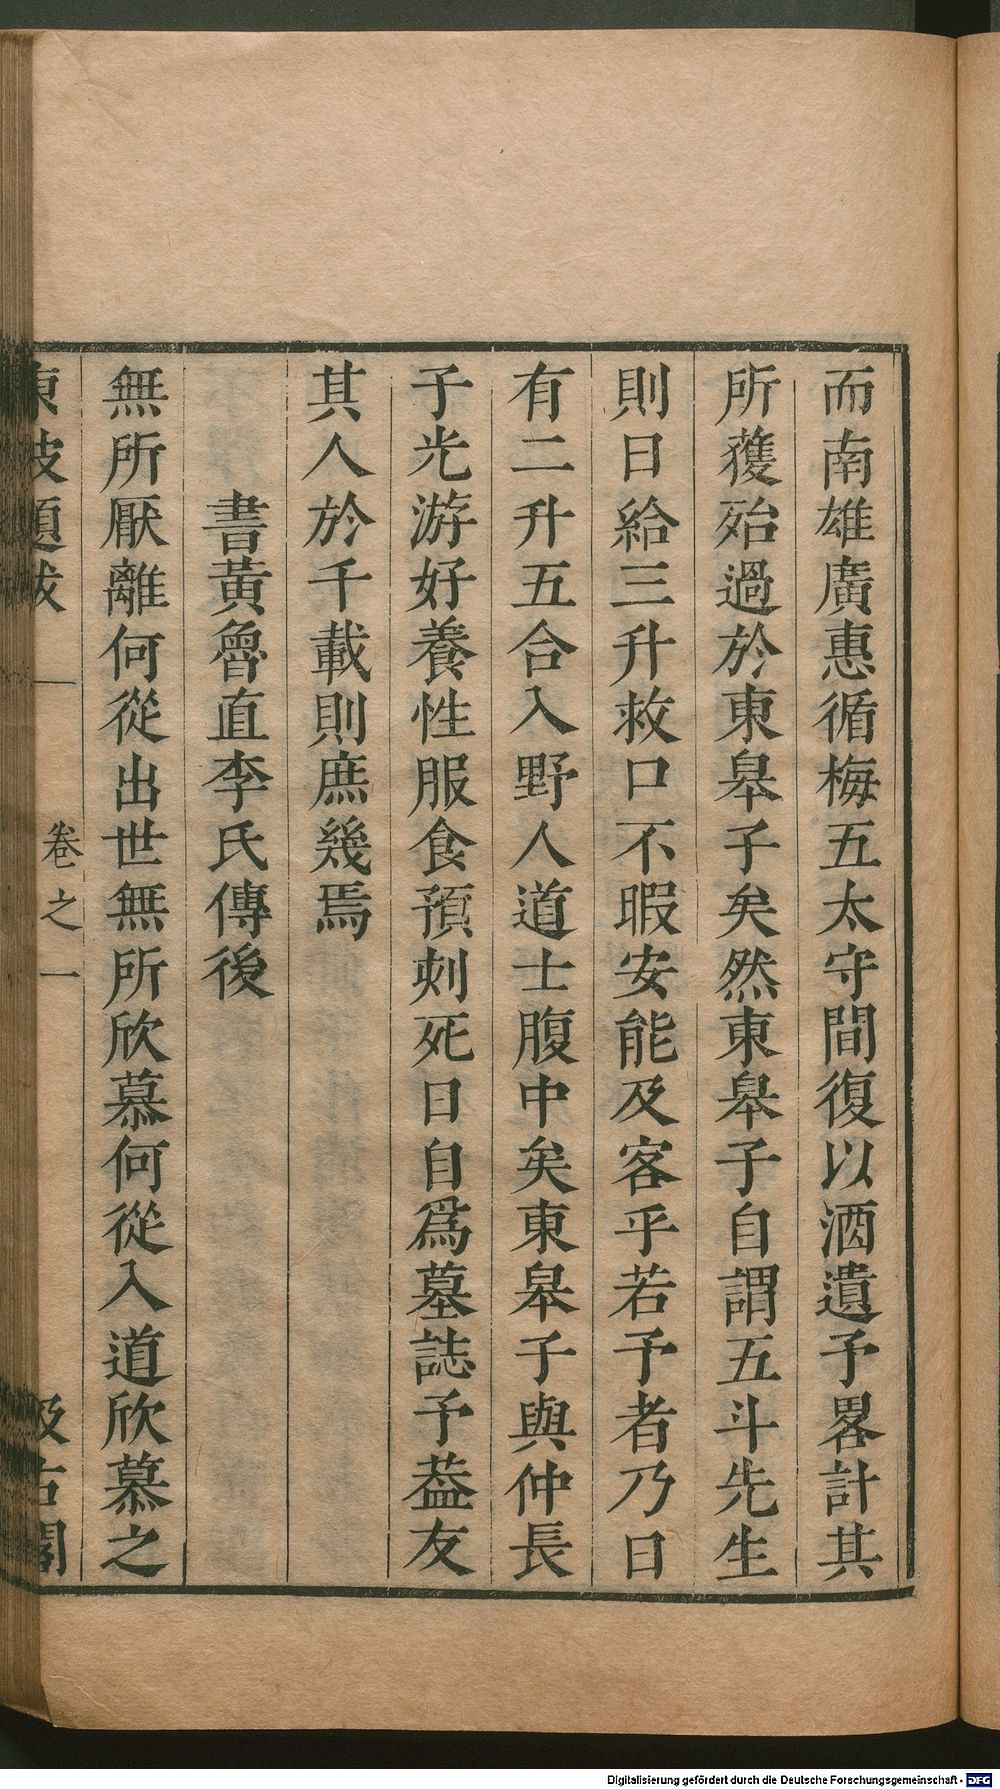 而南雄廣惠循梅五太守間復以酒遺予畧計其
所獲殆過於東皋子矣然東皋子自謂五斗先生
則日給三升救口不暇安能及客乎若予者乃日
有二升五合入野人道士腹中矣東皋子與仲長
子光游好養性服食預刺死日自爲墓誌予葢友
其人於千載則庶幾焉
書黃魯直李氏傳後
無所厭離何從出世無所欣慕何從入道欣慕之
東坡題跋
卷之一
汲古閣
Digitalisierung gefördert durch die Deutsche Forschungsgemeinschaft - DFG